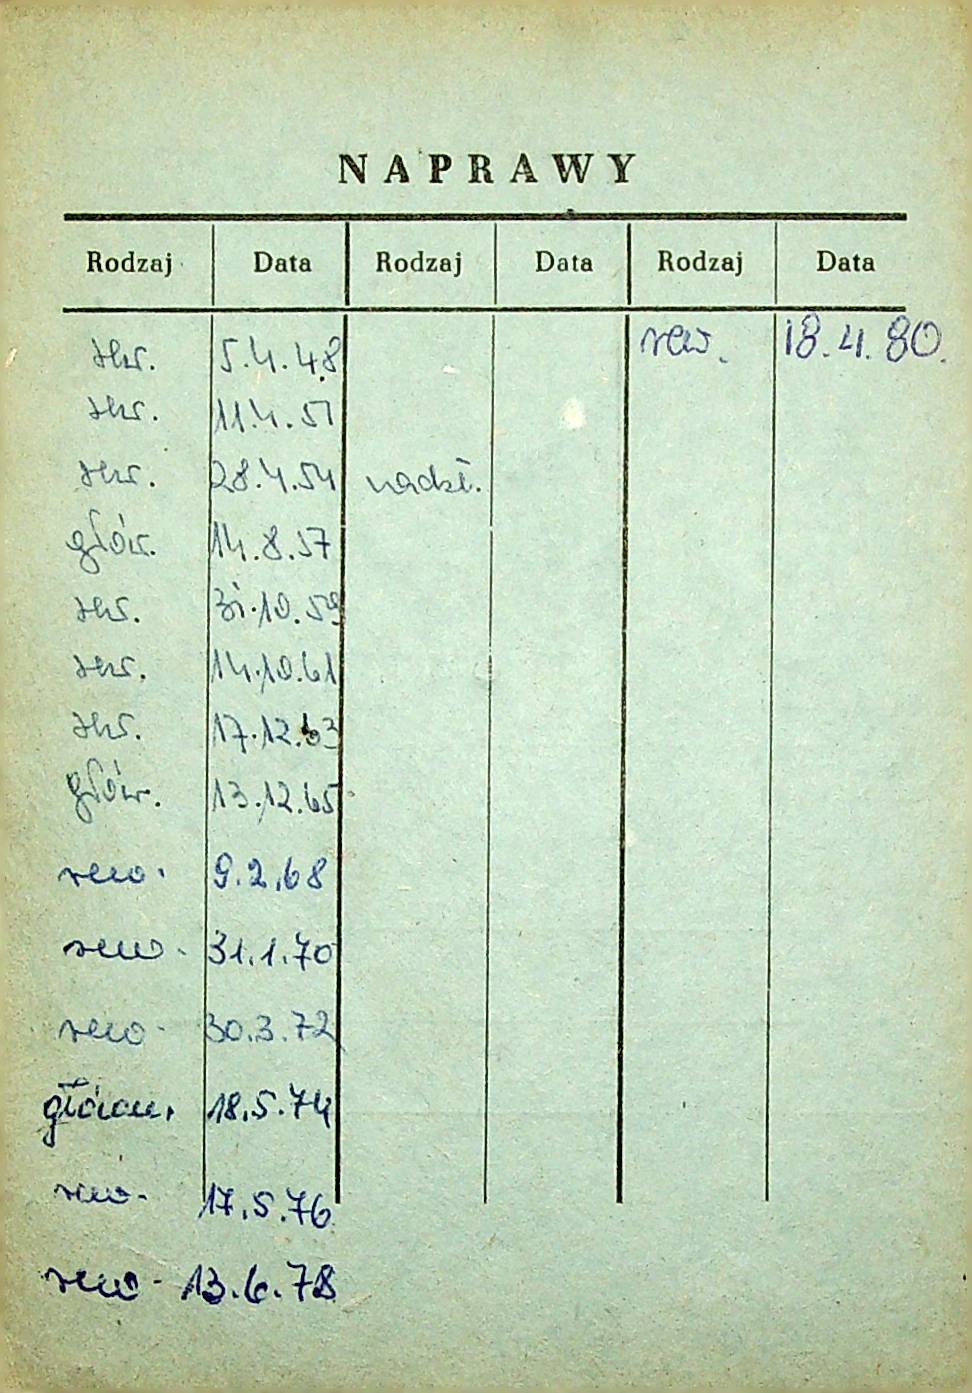 NAPRAWY
Rodzaj Data Rodzaj Data Rodzaj Data
śkr. 5.4.48 rew. 18.4.80.
śkr. 11.4.51
śkr. 28.4.54 nadzł.
głów. 14.8.57
śkr. 31.10.59
śkr. 14.10.61
śkr. 17.12.63
głów. 13.12.65
rew. 9.2.68
rew. 31.1.70
rew. 30.3.72
główn. 18.5.74
rew. 17.5.76
rew. 13.6.78